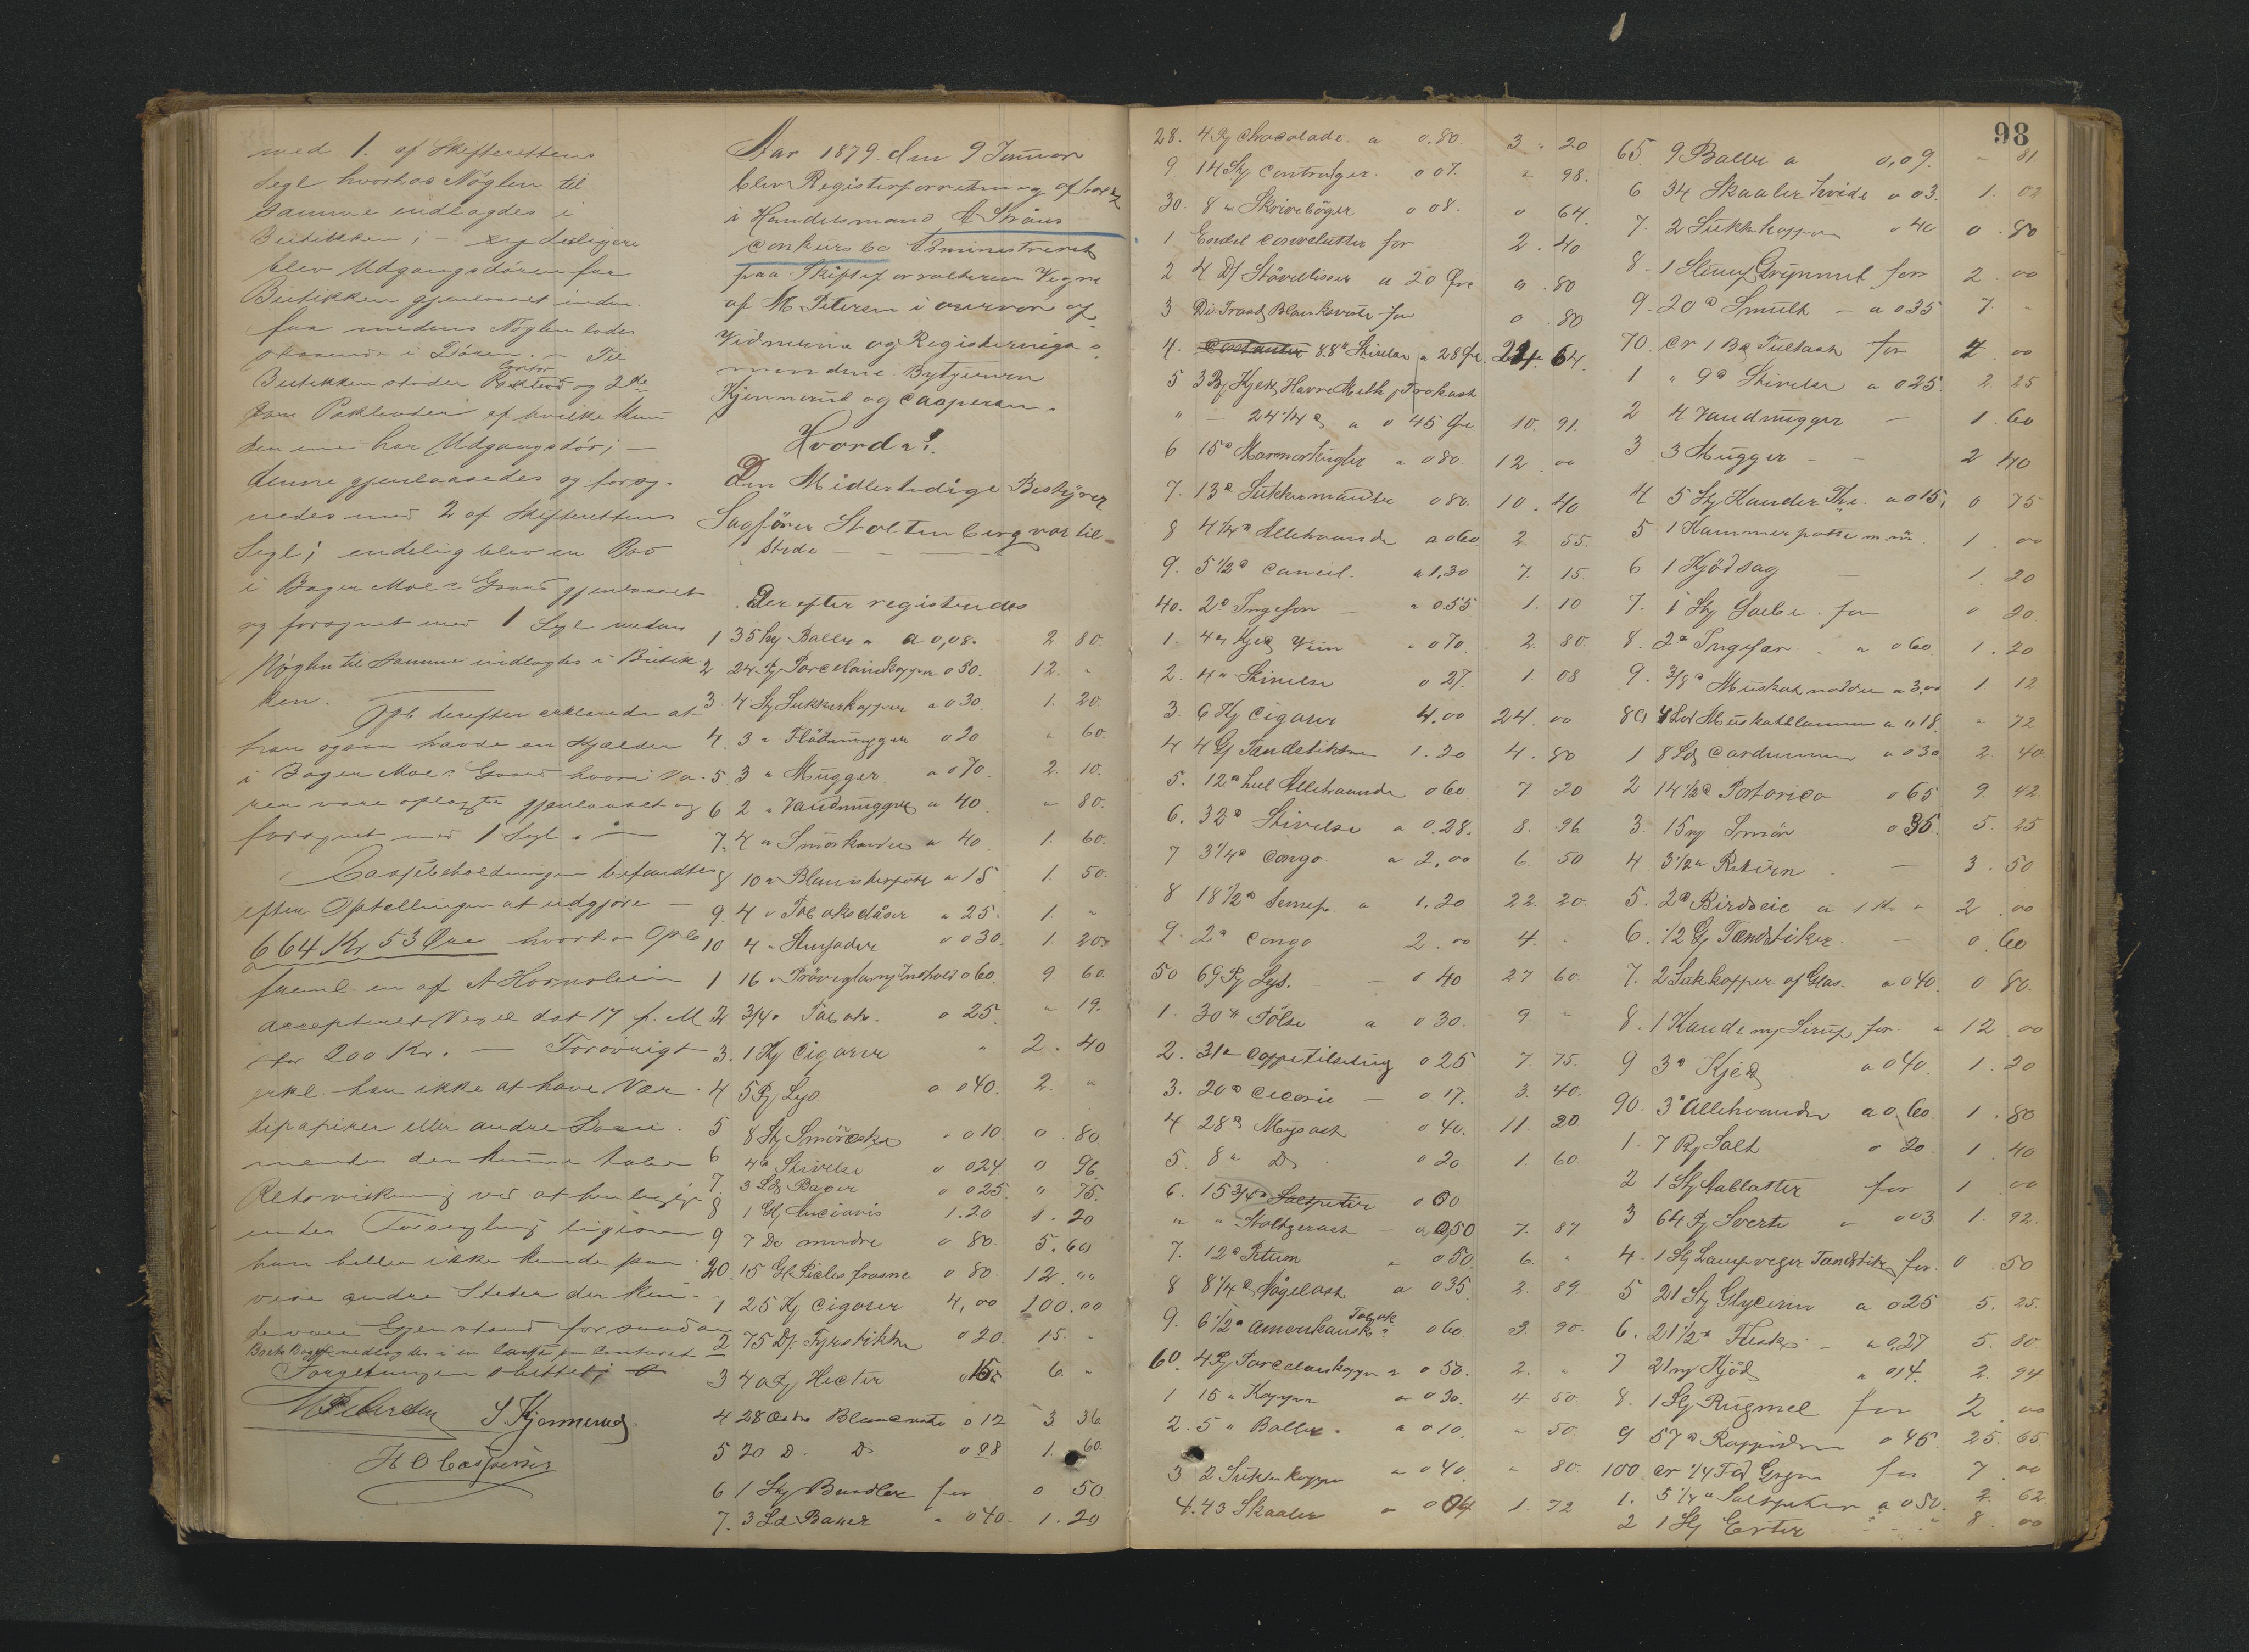 med 1. af Skifterettens
Segl hvorhos Nøglen til
samme indlagdes i
Butikken; – ligesom
blev Udgangsdören fra
Butikken gjenlaaset inden-
fra medens Nøglen lodes
staaende i Dören. – Til
Butikken støder Contor og 2de
Pakboder af hvilke kun
den ene har Udgangsdör; –
denne gjenlaasedes og forseg-
nedes med 2 af Skifterettens
Segl; endelig blev en Bod
i Bager Moe's Gaard gjenlaaset
og forseglet med 1 Segl medens
Nøglen til samme indlagdes i Butik
ken.
Opb. derefter erklærede at
han ogsaa havde en Kjælder
i Bager Moe's Gaard hvori Va-
rer vare oplagte gjenlaaset og
forseglet med 1 Segl. –
Cassabeholdningen befandtes
efter Optællingen at udgjøre –
664 Kr 53 Øre hvorhos Opb.
freml. en af A Hornslein
accepteret Vexel dat 17 f. M.
for 200 Kr. – Forøvrigt
erkl. han ikke at have Vær-
dipapirer eller andre
der kunne tabe
Retsvirkning ved at henligge
under Forsegling ligesom
han heller ikke kunde paa-
vise andre Steder der kun-
de være Gjenstand for saadan
Boets Bøger nedlagdes i en Casse paa Contoret –
Forretningen sluttet;
M Petersen S. Kjennerud
H O Caspersen
Aar 1879. den 9 Januar
blev Registerforretning afholdt
i Handelsmand C. Straus
Conkursbo Administreret
paa Skifteforvalterens Vegne
af M. Petersen i Overvær af
Vidnerne og Registerings-
mændene Bytjenern
Kjennerud og Caspersen.
Hvorda!
Den Midlertidige Bestyrer
Sagfører Stoltenberg var til-
stede – – –
Derefter registredes
1 35 Stk Baller a a 0,08. 2 80.
2 24 P Porcelainskopper o 50. 12. "
3. 4 Stk Sukkerkopper a o 30. 1. 20.
4. 3 " Flödemugger o 20 " 60.
5. 3 " Mugger. a o 70. 2. 10.
6 2 " Vandmugger a 40 " 80.
7. 4 " Smörkander a 40. 1. 60.
8 10 " Blankskurepotte a 15 1. 50.
9. 4 " Tobaksdåser a 25. 1. "
10 4 " o 0 30. 1. 20
1 16 " Pröveglas m Indhold o 60. 9. 60.
2 3/4 " Tobak. o 25. " 19.
3. 1 K Cigarer " 2. 40
4 5 P Lys o o 40. 2. "
5 8 St Smöræsker " o 10. 0. 80.
6 4 ℔ Stivelse o o 24. 0 96.
7. 3 L Baner o o 25 " 75.
8 1 Gl Anciovis 1.20 1. 20
9 7 Do mindre o 80. 5. 60
20. 15 Gl Picles frosne o 80. 12. ""
1 25 K Cigarer 4,00 100.00
2 75 D Fyrstikker o 20. 15. "
3 40 P Hecter o 15 6. "
4 28 Æsker Blanksverte o 12 3 36
5 20 D. D o 08 1. 60.
6 1 St Bundler for 0 50.
7. 3 Ld Baner " o 40. 1. 20
98
28. 4 P Chocolade. a 0.80. 3 " 20
9 14 St o 07. " 98.
30. 8 " Skrivebøger o 08. 0 64
1 Endel Convolutter for 2. 40
2 4 D Støvlelisser a 20 Øre 0. 80
3 Div. Traad, Blanksverte for 0. 80
4. 88 ℔ Stivelse a 28 Øre 24. 64.
5 3 B
" – 24 1/4 ℔ a o 45 Øre 10. 91.
6 15 ℔ Marmorkugler a o 80. 12. 00
7. 13 ℔ Sukkermandler o 80. 10. 40
8 4 1/4 ℔ Allehaande a o 60. 2. 55.
9. 5 1/2 ℔ Caneel. a 1,30 7. 15.
40. 2 ℔ Ingefær – a 0.55 1. 10
1. 4 " Viin " o 70. 2. 80.
2. 4 " Stivelse o 27. 1. 08
3 6 K Cigarer 4,00 24. 00
4 4 G Tændstikker 1.20 4. 80
5. 12 ℔ heel Allehaande o 60 7. 20
6. 32 ℔ Stivelse a 0.28. 8. 96
7 3 1/4 ℔ Congo. a 2,00 6. 50
8 18 1/2 ℔ Sennep. a 1.20 22. 20.
9. 2 ℔ Congo 2.00 4. "
50 69 P Lys. – – o 40 27 60.
1. 30 ℔ Pölse a o 30. 9 "
2. 31 " Caffetilsetning o 25 7. 75.
3. 20 ℔ Cicorie – o 17. 3. 40.
4 28 ℔ o 40. 11. 20.
5. 8 " D o 20. 1. 60.
6. 15 3/4 ℔ Saltpeter o 00
" " a 0,50 7. 87
7. 12 ℔ Petum " o 50. 6. "
8 8 1/4 ℔ a o 35. 2. 89.
9. 6 1/2 ℔ Amerikansk Tobak o 60. 3. 90.
60. 4 P Porcelainskopper a o 50. 2. "
1 15 " Kopper a o 30. 4. 50
2. 5 " Baller. a o 10. " 50.
3 2 Sukkerkopper a o 40 " 80
4. 43 Skaaler a o 04 1. 72
65. 9 Baller a 0,09. " 81
6 34 Skaaler hvide a o 3. 1. 02
7. 2 Sukkerkopper o 40 0. 80
8 – 1 Stamp Grynmel for 2. 00
9. 20 ℔ Smult – a o 35 7. "
70. cr 1 B for 2 00
1 " 9 ℔ Stivelse a o 25. 2. 25
2 4 Vandmugger – 1. 60
3 3 Mugger – – 2 40
4 5 St Kander The. a o 15. 0 75
5 1 Kammerpotte m. m. 1. 00
6 1 Kjödsag – 1. 20
7. 1 St Sæbe. for 0 20.
8. 2 ℔ Ingefær. " a o 60 1. 20
9. 3/8 ℔ Muskatnødder a 3,00 1. 12
80 4 Lod Muskatblomme a o 18. " 72
1 8 Lod Cardemomme a o 30. 2. 40.
2 14 1/2 ℔ Portorico o 65 9. 42.
3. 15 m Smör o 35. 5. 25
4. 3 1/2 " – 3. 50
5. 2 ℔ Birdseie a 1 Kr " 2. 00
6. 1/2 G Tændstikker. – 0. 60
7. 2 Sukkopper af Glas. a o 40. 0 80.
8. 1 Kande m Sirup for. " 12. 00
9 3 ℔ Kjex a o 40. 1. 20
90. 3 ℔ Allehaande a o, 60. 1. 80
1. 7 P Salt o 20. 1. 40
2 1 St Oablatter for 1 00
3 64 P Sverte " o 03 1. 92.
4. 1 St Lampeveger Tændstik for. 0. 50
5 21 St Glycerin a o 25 5. 25.
6. 21 1/2 ℔ Flesk – a 0,27 5. 80
7 21 m Kjöd " o 14. 2. 94
8. 1 St Rugmel for 2. 00
9 57 ℔ o 45 25. 65
100. cr 1/4 Td Gryn for 7. 00
1. 5 1/4 " Saltpeter a o 50. 2. 62
2 1 St Erter – – " 8. 00